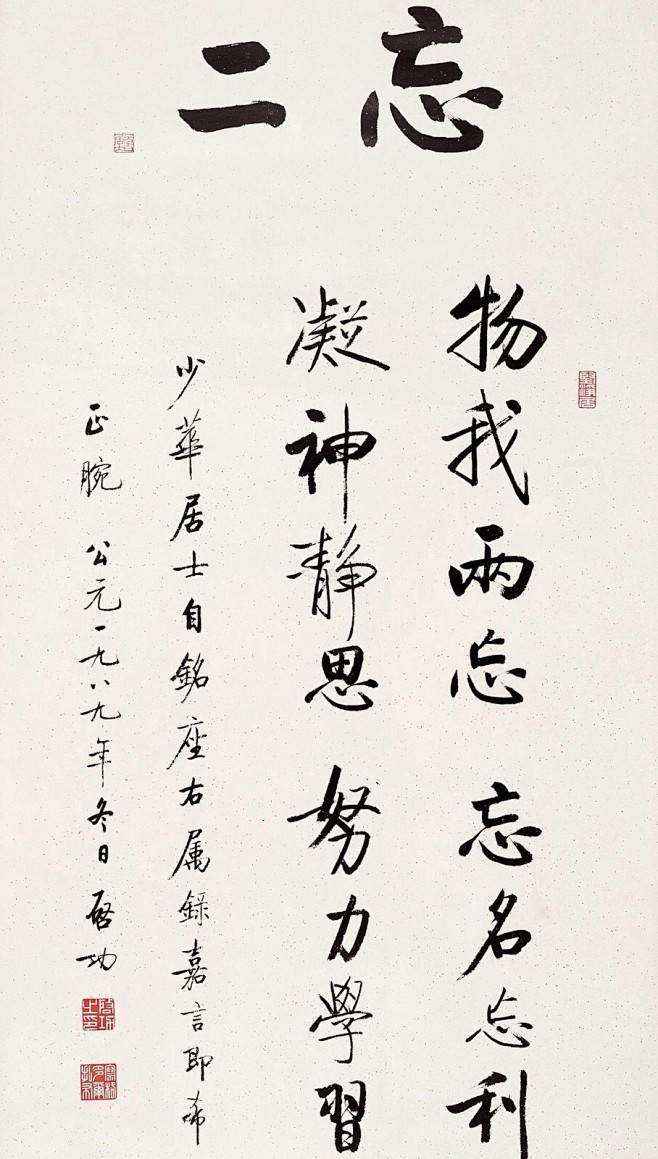 忘二
物我兩忘 忘名忘利
凝神静思 努力學習
少華居士自銘座右属録嘉言即希
正腕 公元一九八九年冬日 啓功
啓功之印